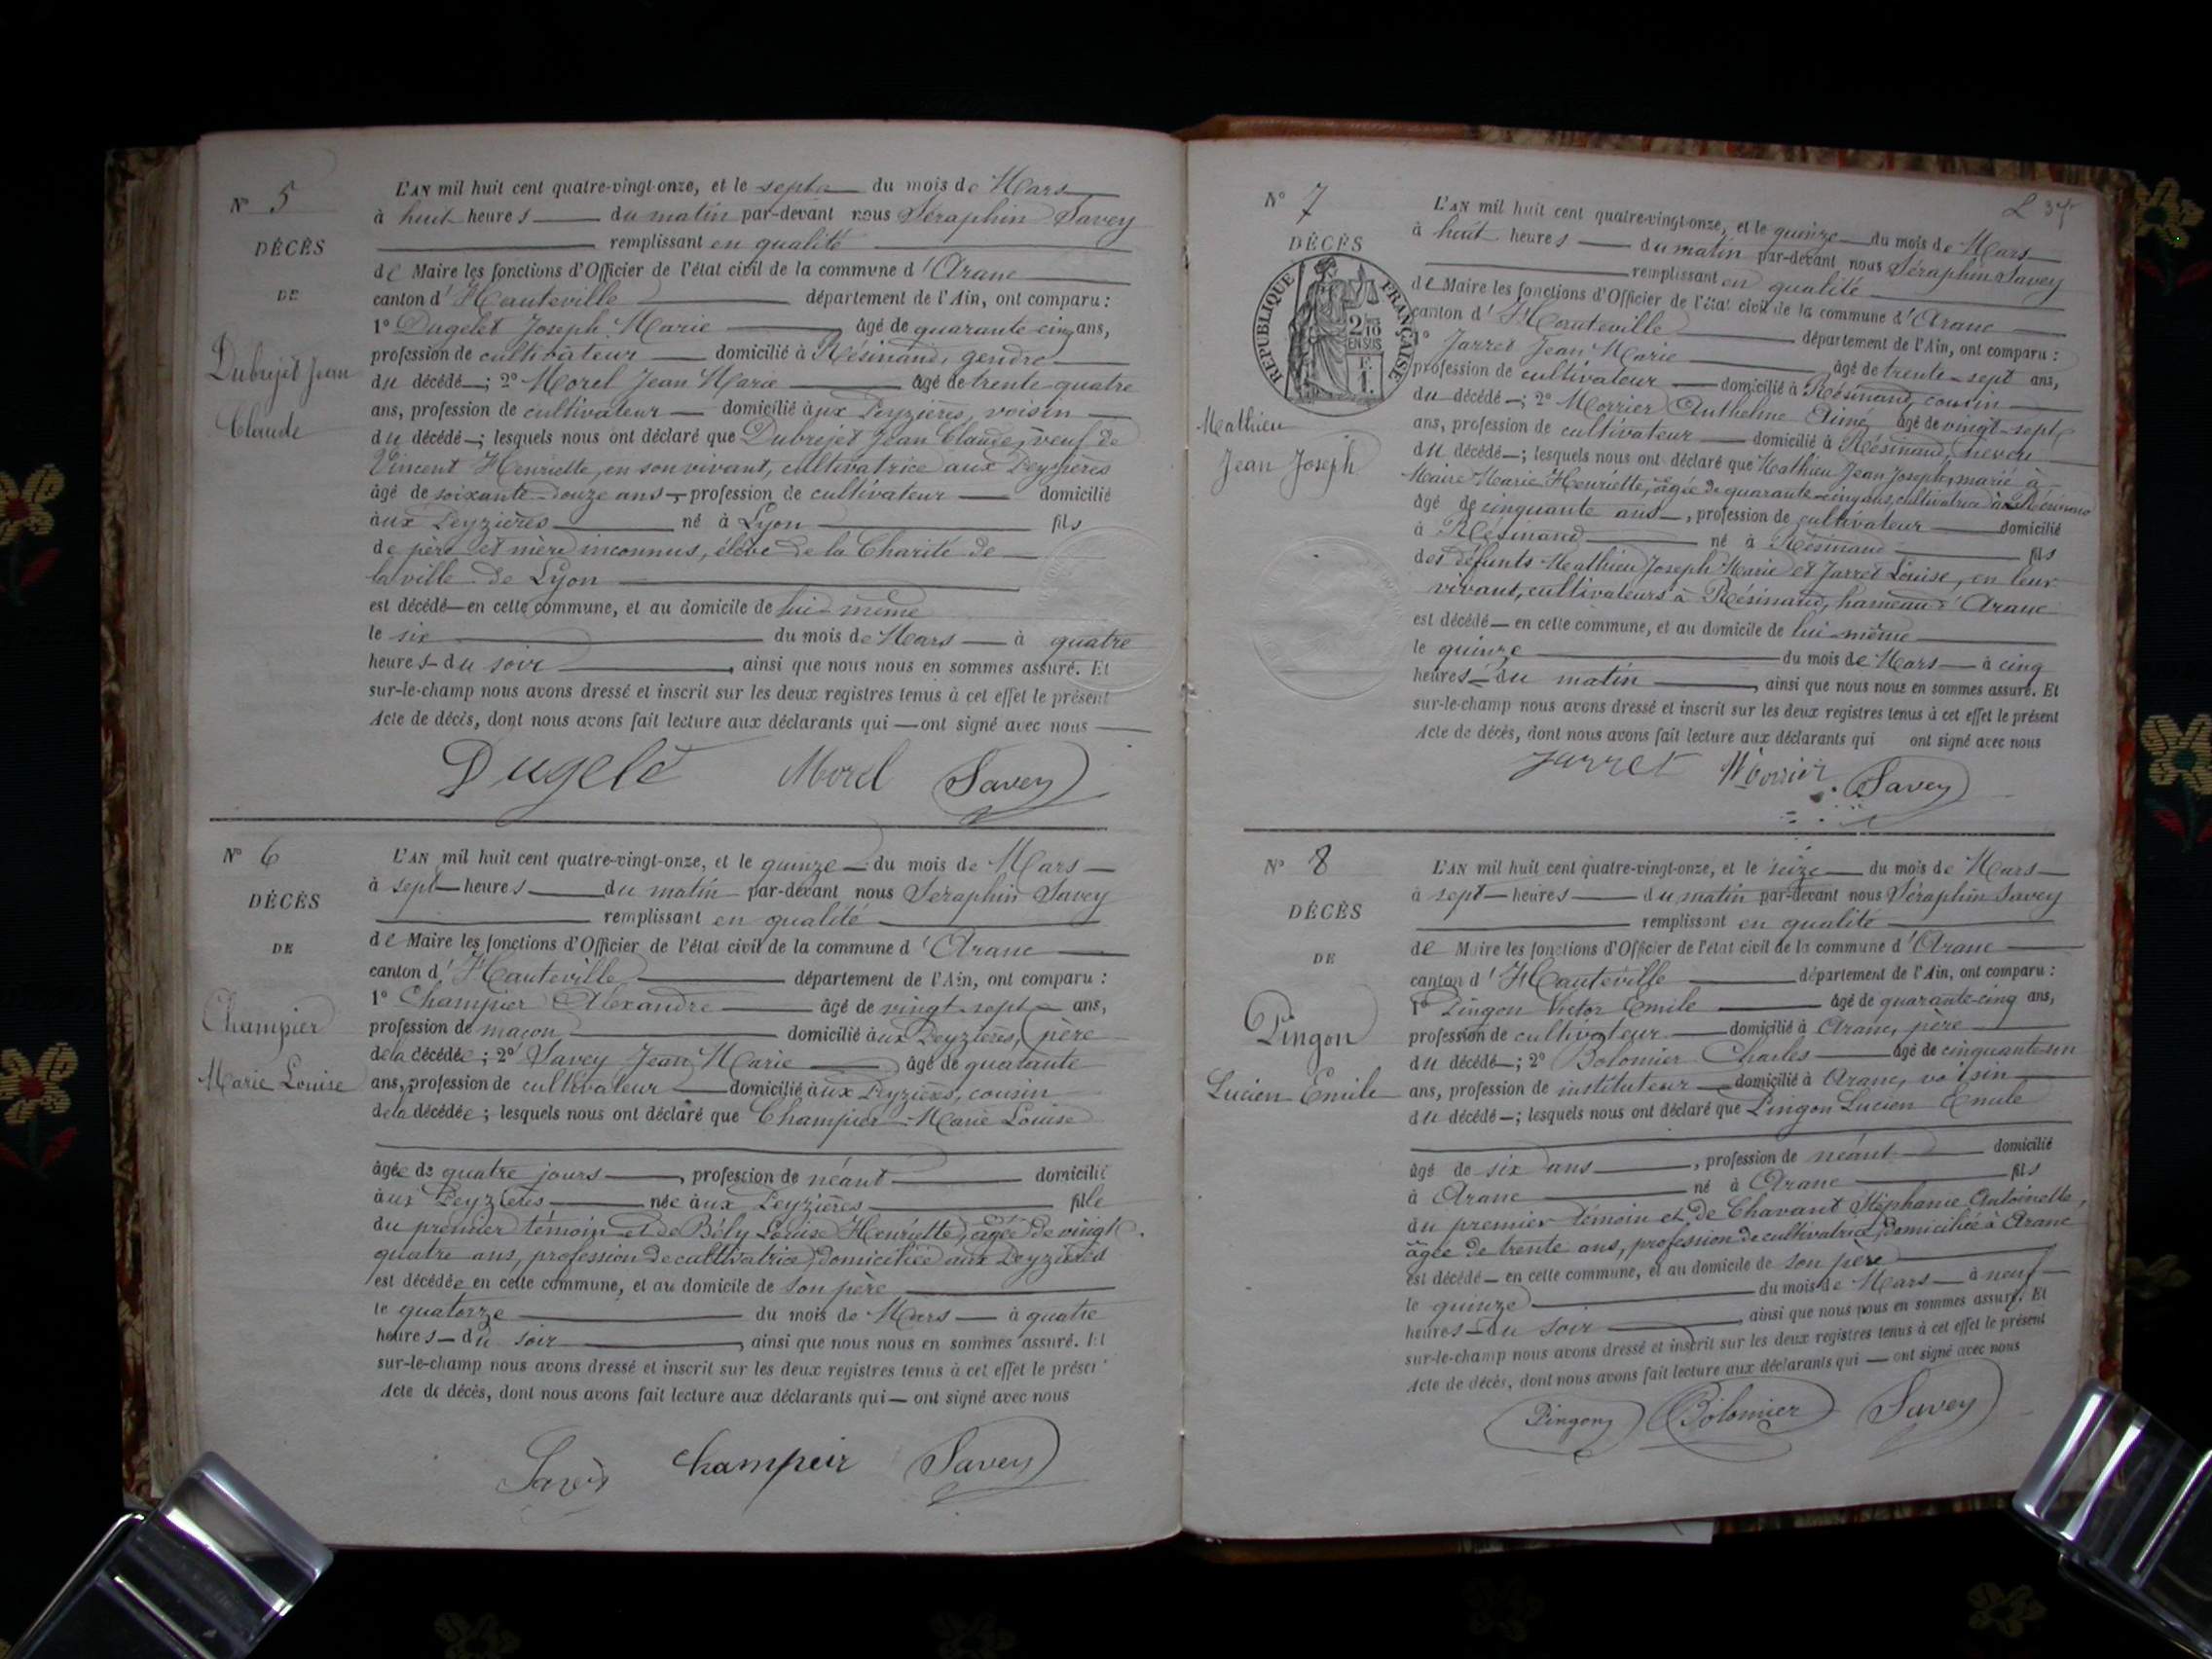 N° 5
DÉCÈS
DE
Dubrejet Jean
Claude
L'AN mil huit cent quatre-vingt-onze, et le sept du mois de Mars
à huit heures du matin par-devant nous Séraphin Savey
remplissant en qualité
de Maire les fonctions d'Officier de l'état civil de la commune d'Aranc
canton d'Hauteville département de l'Ain, ont comparu :
1° Dugelet Joseph Marie âgé de quarante-cinq ans,
profession de cultivateur domicilié à Résinand, gendre
du décédé ; 2° Morel Jean Marie âgé de trente-quatre
ans, profession de cultivateur domicilié aux Peyzières, voisin
du décédé ; lesquels nous ont déclaré que Dubrejet Jean Claude, veuf de
Vincent Henriette, en son vivant, cultivatrice aux Peyzières
âgé de soixante-douze ans, profession de cultivateur domicilié
aux Peyzières né à Lyon fils
de père et mère inconnus, élève de la Charité de
la ville de Lyon
est décédé en cette commune, et au domicile de lui-même
le six du mois de Mars à quatre
heures du soir, ainsi que nous nous en sommes assuré. Et
sur-le-champ nous avons dressé et inscrit sur les deux registres tenus à cet effet le présent
Acte de décès, dont nous avons fait lecture aux déclarants qui ont signé avec nous
Dugelé Morel Savey
N° 6
DÉCÈS
DE
Champier
Marie Louise
L'AN mil huit cent quatre-vingt-onze, et le quinze du mois de Mars
à sept heures du matin par-devant nous Séraphin Savey
remplissant en qualité
de Maire les fonctions d'Officier de l'état civil de la commune d'Aranc
canton d'Hauteville département de l'Ain, ont comparu :
1° Champier Alexandre âgé de vingt-sept ans,
profession de maçon domicilié aux Peyzières, père
de la décédée ; 2° Savey Jean Marie âgé de quarante
ans, profession de cultivateur domicilié aux Peyzières, cousin
de la décédée ; lesquels nous ont déclaré que Champier Marie Louise
âgée de quatre jours, profession de néant domicilié
aux Peyzières née aux Peyzières fille
du premier témoin et de Bély Louise Henriette, âgée de vingt-
quatre ans, profession de cultivatrice, domiciliée aux Peyzières
est décédée en cette commune, et au domicile de son père
le quatorze du mois de Mars à quatre
heures du soir, ainsi que nous nous en sommes assuré. Et
sur-le-champ nous avons dressé et inscrit sur les deux registres tenus à cet effet le présent
Acte de décès, dont nous avons fait lecture aux déclarants qui ont signé avec nous
champeir Savey
N° 7
DÉCÈS
RÉPUBLIQUE FRANÇAISE
2/10 EN SUS
Mathieu
Jean Joseph
L'AN mil huit cent quatre-vingt-onze, et le quinze du mois de Mars
à huit heures du matin par-devant nous Séraphin Savey
remplissant en qualité
de Maire les fonctions d'Officier de l'état civil de la commune d'Aranc
canton d'Hauteville département de l'Ain, ont comparu :
1° Jarret Jean Marie âgé de trente-sept ans,
profession de cultivateur domicilié à Résinand, cousin
du décédé ; 2° Morrier Anthelme Aimé âgé de vingt-sept
ans, profession de cultivateur domicilié à Résinand, neveu
du décédé ; lesquels nous ont déclaré que Mathieu Jean Joseph, marié à
Maire Marie Henriette, âgée de quarante-cinq ans, cultivatrice à Résinand
âgé de cinquante ans, profession de cultivateur domicilié
à Résinand né à Résinand fils
des défunts Mathieu Joseph Marie et Jarret Louise, en leur
vivant, cultivateurs à Résinand, hameau d'Aranc
est décédé en cette commune, et au domicile de lui-même
le quinze du mois de Mars à cinq
heures du matin, ainsi que nous nous en sommes assuré. Et
sur-le-champ nous avons dressé et inscrit sur les deux registres tenus à cet effet le présent
Acte de décès, dont nous avons fait lecture aux déclarants qui ont signé avec nous
Jarret Morrier Savey
N° 8
DÉCÈS
DE
Pingon
Lucien Emile
L'AN mil huit cent quatre-vingt-onze, et le seize du mois de Mars
à sept heures du matin par-devant nous Séraphin Savey
remplissant en qualité
de Maire les fonctions d'Officier de l'état civil de la commune d'Aranc
canton d'Hauteville département de l'Ain, ont comparu :
1° Pingon Victor Emile âgé de quarante-cinq ans,
profession de cultivateur domicilié à Aranc, père
du décédé ; 2° Bolomier Charles âgé de cinquante-un
ans, profession de instituteur domicilié à Aranc, voisin
du décédé ; lesquels nous ont déclaré que Pingon Lucien Emile
âgé de six ans, profession de néant domicilié
à Aranc né à Aranc fils
du premier témoin et de Chavant Stéphanie Antoinette,
âgée de trente ans, profession de cultivatrice, domiciliée à Aranc
est décédé en cette commune, et au domicile de son père
le quinze du mois de Mars à neuf
heures du soir, ainsi que nous nous en sommes assuré. Et
sur-le-champ nous avons dressé et inscrit sur les deux registres tenus à cet effet le présent
Acte de décès, dont nous avons fait lecture aux déclarants qui ont signé avec nous
Pingon Bolomier Savey